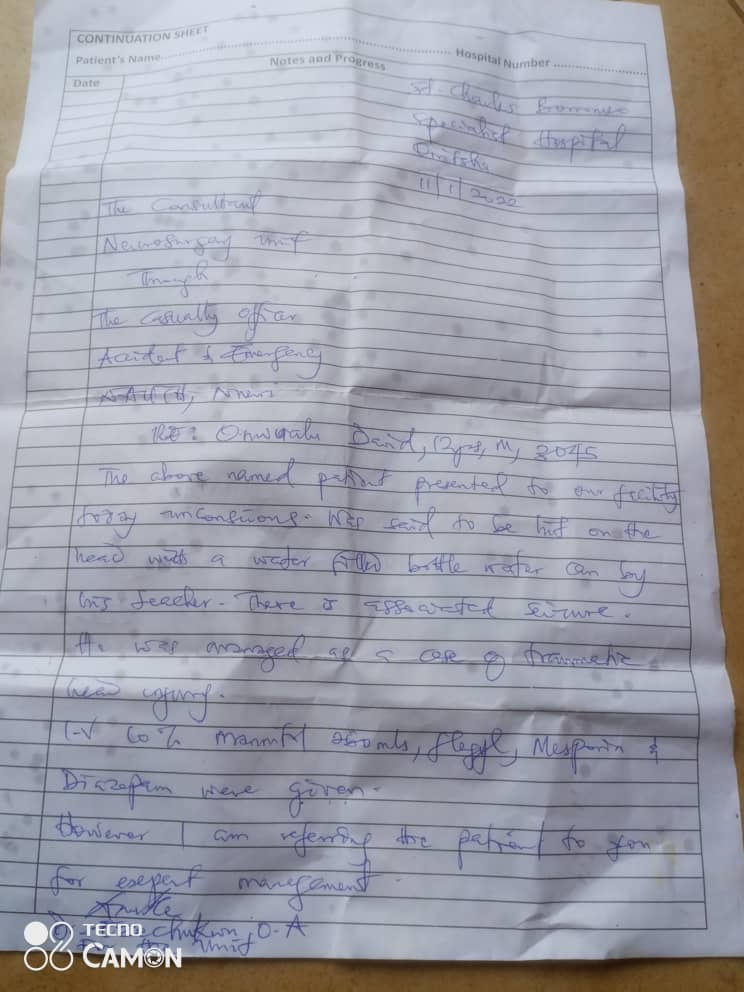 CONTINUATION SHEET
Patient's Name............ Hospital Number ............
Notes and Progress
Date
St. Charles Borromeo
Specialist Hospital
Onitsha
11/1/2022
The Consultant
Neurosurgery Unit
Through
The Casualty Officer
Accident & Emergency
NAUTH, Nnewi
RE: David, 12yrs, M, 3045
The above named patient presented to our facility
unconscious. Was said to be hit on the
head with a water filled bottle water can by
his teacher. There is associated seizure.
He was managed as a case of traumatic
head injury.
I.V mannitol 250mls, flagyl, Mesporin &
Diazepam were given.
However I am referring the patient to you
for expert management.
O.A
Unit
TECNO
CAMON